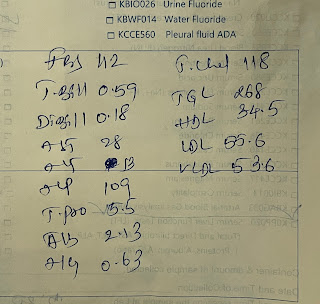 KBIO026 Urine Fluoride
KBWF014 Water Fluoride
KCCE560 Pleural fluid ADA
FBS 112
T.Bill 0.59
D.Bill 0.18
28
13
ALP 109
T.pro 5.5
Alb 2.13
A/G 0.63
T.chol 118
TGL 268
HDL 34.5
LDL 55.6
VLDL 53.6